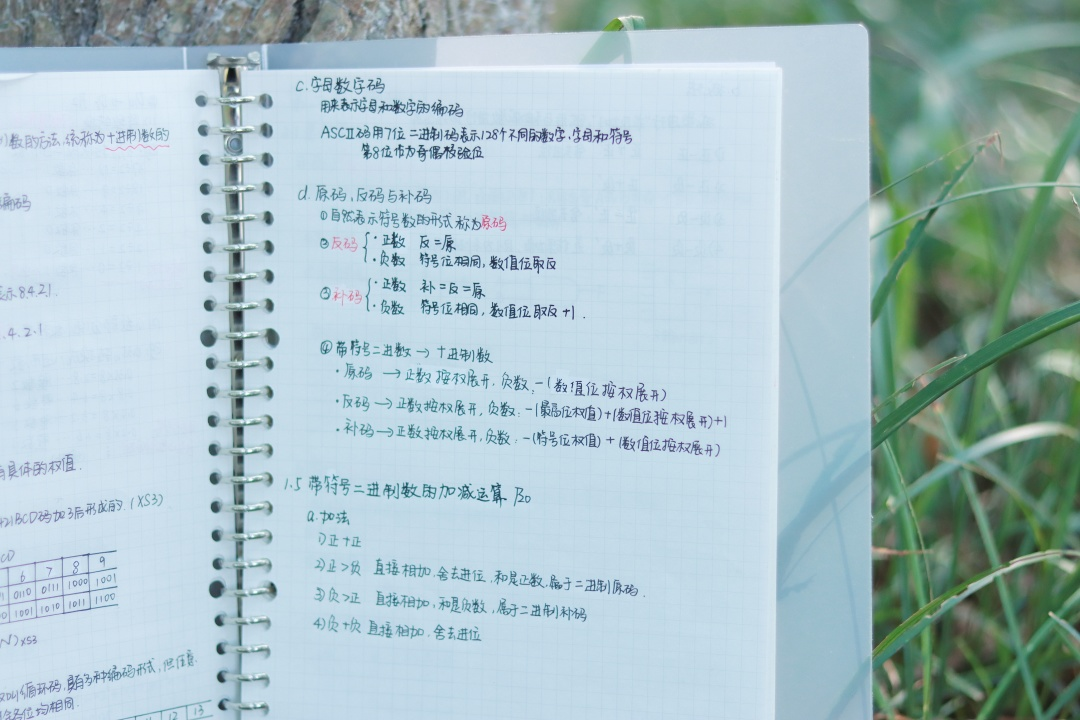 制数的方法,统称为十进制数的
编码
示8.4.2.1.
.4.2.1
有具体的权值.
421BCD码加3后形成的.(XS3)
CD
6 7 8 9
1 0110 0111 1000 1001
0 1001 1010 1011 1100
N)XS3
循环码,具有多种编码形式,但任意
各位均相同.
11 12 13
c.字母数字码
用来表示字母和数字的编码
ASCII码用7位二进制码表示128个不同的数字,字母和符号
第8位作为奇偶校验位
d.原码,反码与补码
①自然表示符号数的形式称为原码
②反码{·正数 反=原
·负数 符号位相同,数值位取反
③补码{·正数 补=反=原
·负数 符号位相同,数值位取反+1.
④带符号二进数→十进制数
·原码→正数按权展开,负数:-(数值位按权展开)
·反码→正数按权展开,负数:-(最高位权值)+(数值位按权展开)+1
·补码→正数按权展开,负数:-(符号位权值)+(数值位按权展开)
1.5带符号二进制数的加减运算 P20
a.加法
1)正+正
2)正>负 直接相加,舍去进位,和是正数,属于二进制原码.
3)负>正 直接相加,和是负数,属于二进制补码
4)负+负 直接相加,舍去进位